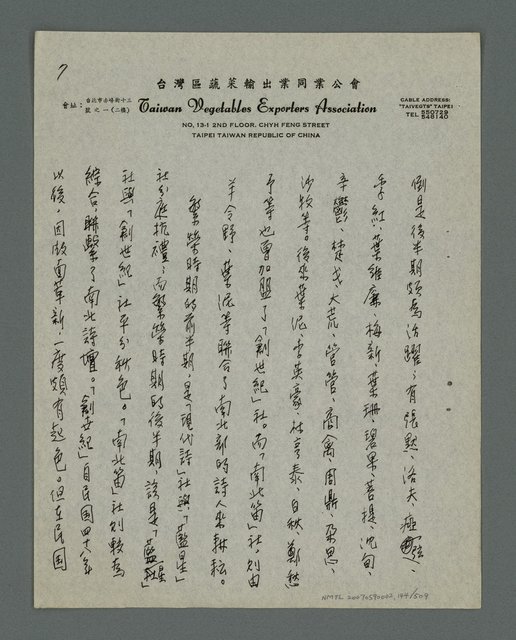 7
台灣區蔬菜輸出業同業公會
會址：台北市赤峰街十三號之一（二樓）
Taiwan Vegetables Exporters Association
CABLE ADDRESS:
"TAIVEGTS" TAIPEI
TEL 550729
548140
NO, 13-1 2ND FLOOR. CHYH FENG STREET
TAIPEI TAIWAN REPUBLIC OF CHINA
倒是後半期頗為活躍，有張默、洛夫、瘂弦、
季紅、葉維廉、梅新、葉珊、碧果、菩提、沈甸、
辛鬱、楚戈、大荒、管管、商禽、周鼎、朶思、
沙牧等。後來葉泥、李英豪、杜亨泰、白萩、鄭愁
予等也曾加盟了「創世紀」社。而「南北笛」社，則由
羊令野、葉泥等聯合了南北部的詩人來耕耘。
繁榮時期的前半期，是「現代詩」社與「藍星」
社分庭抗禮；而繁榮時期的後半期，該是「藍星」
社與「創世紀」社平分秋色。「南北笛」社則較為
綜合，聯繫了南北詩壇。「創世紀」自民國四十八年
以後，因版面革新，一度頗有起色。但在民國
NMTL 20070590002, 194/509